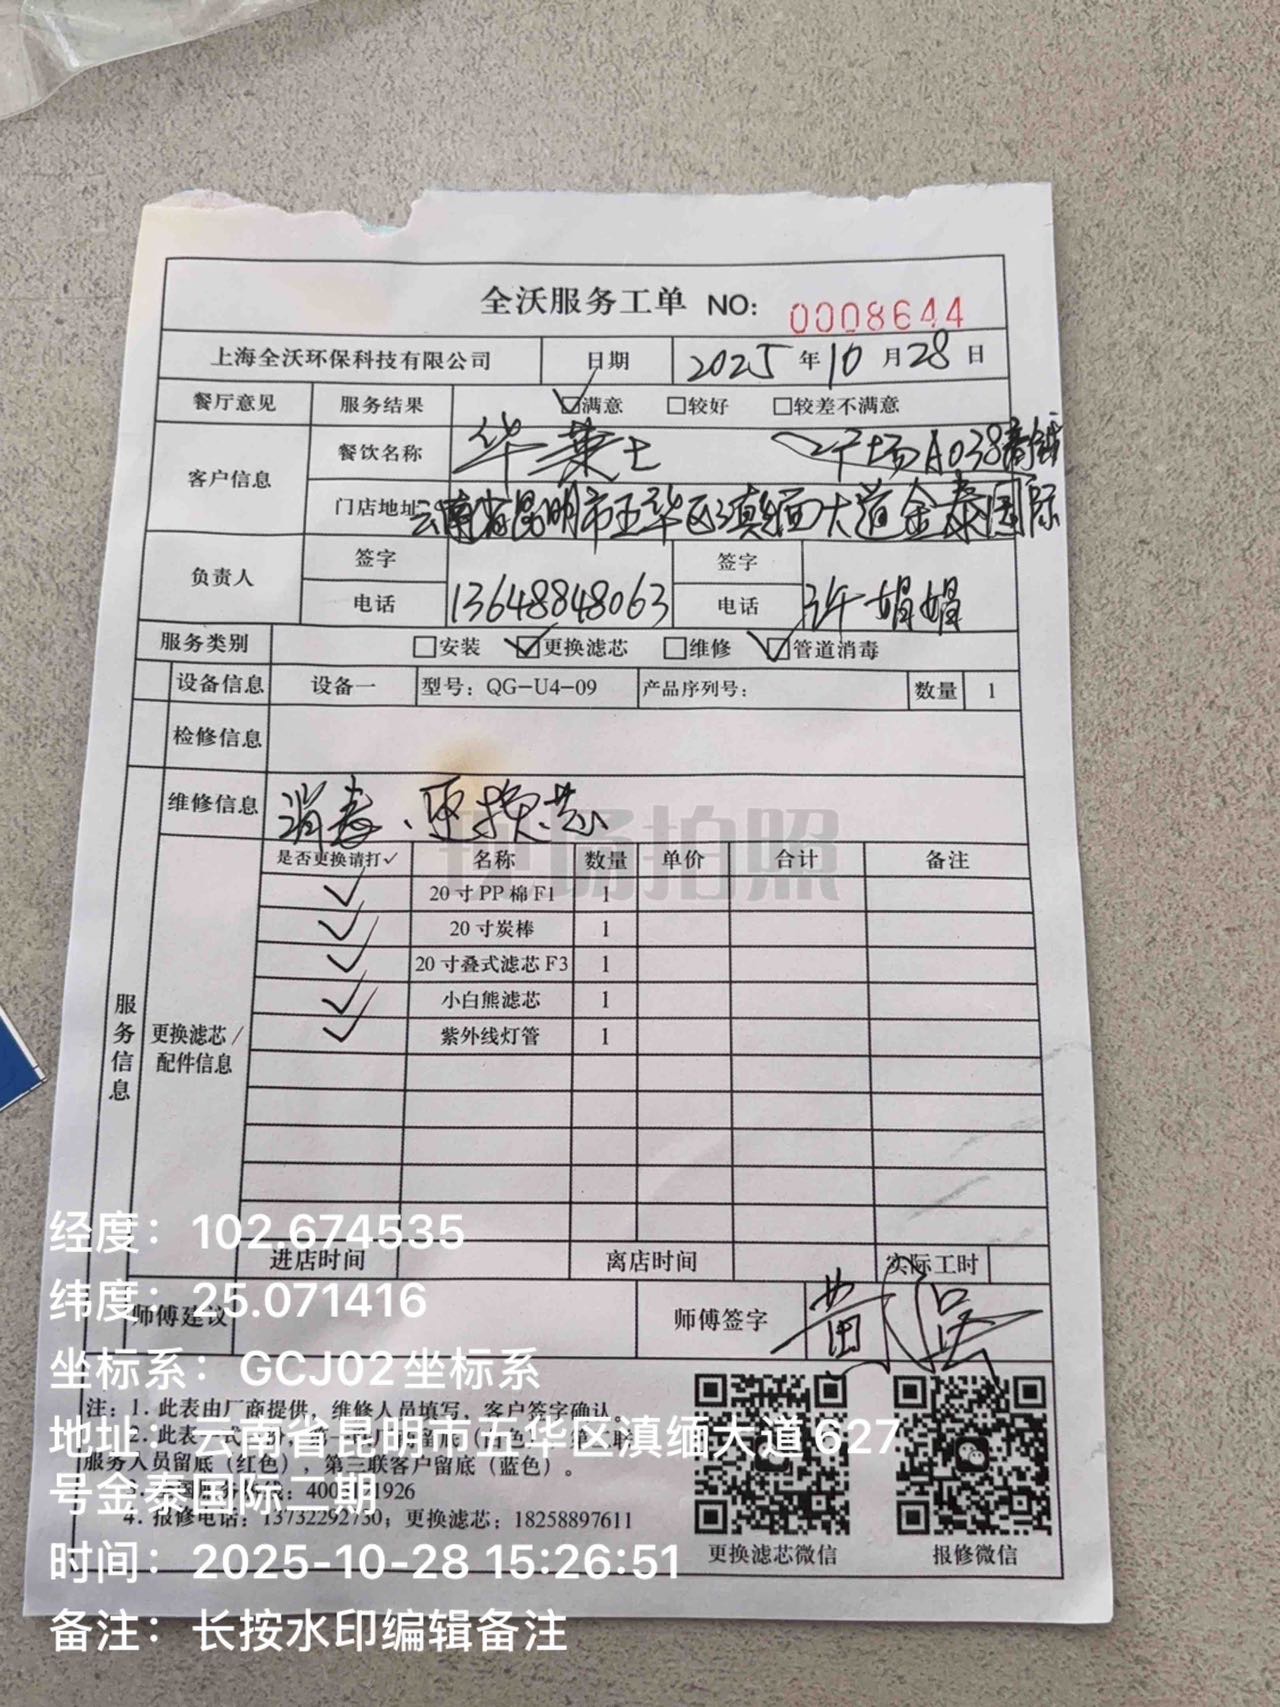 全沃服务工单 NO: 0008644
上海全沃环保科技有限公司 日期 2025年10月28日
餐厅意见 服务结果 ☑满意 □较好 □较差不满意
客户信息 餐饮名称 华莱士 广场A038商铺
门店地址 云南省昆明市五华区滇缅大道金泰国际
负责人 签字 签字
电话 13648848063 电话 许娟娟
服务类别 □安装 ☑更换滤芯 □维修 ☑管道消毒
设备信息 设备一 型号：QG-U4-09 产品序列号： 数量 1
检修信息
维修信息 消毒、更换芯
现场拍照
是否更换请打✓ 名称 数量 单价 合计 备注
✓ 20寸PP棉F1 1
✓ 20寸炭棒 1
✓ 20寸叠式滤芯F3 1
✓ 小白熊滤芯 1
✓ 紫外线灯管 1
服务信息
更换滤芯/
配件信息
进店时间 离店时间 实际工时
师傅建议 师傅签字
注：1. 此表由厂商提供，维修人员填写，客户签字确认。
服务人员留底（红色），第三联客户留底（蓝色）。
4. 报修电话：13732292730；更换滤芯：18258897611
更换滤芯微信 报修微信
经度：102.674535
纬度：25.071416
坐标系：GCJ02坐标系
地址：云南省昆明市五华区滇缅大道627
号金泰国际二期
时间：2025-10-28 15:26:51
备注：长按水印编辑备注